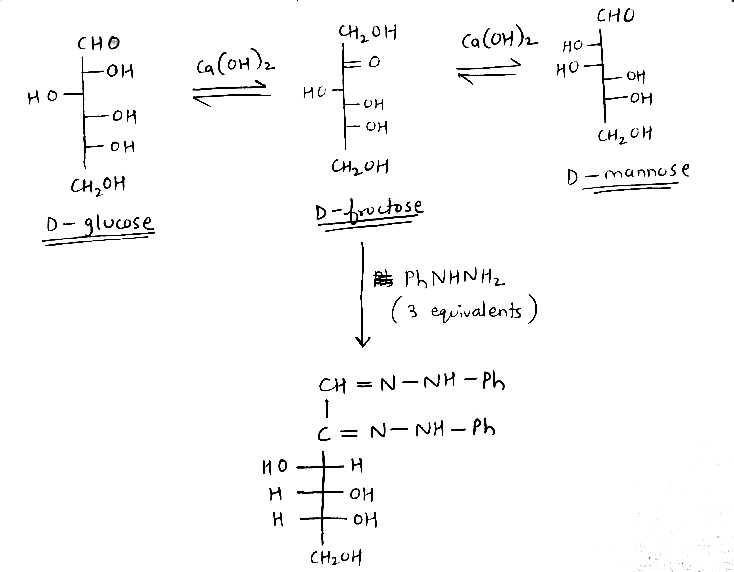 CHO
OH
HO
OH
OH
CH2OH
D- glucose
Ca(OH)2
CH2OH
O
HO
OH
OH
CH2OH
D-fructose
Ca(OH)2
CHO
HO
HO
OH
OH
CH2OH
D-mannose
PhNHNH2
(3 equivalents)
CH=N-NH-Ph
C=N-NH-Ph
HO H
H OH
H OH
CH2OH